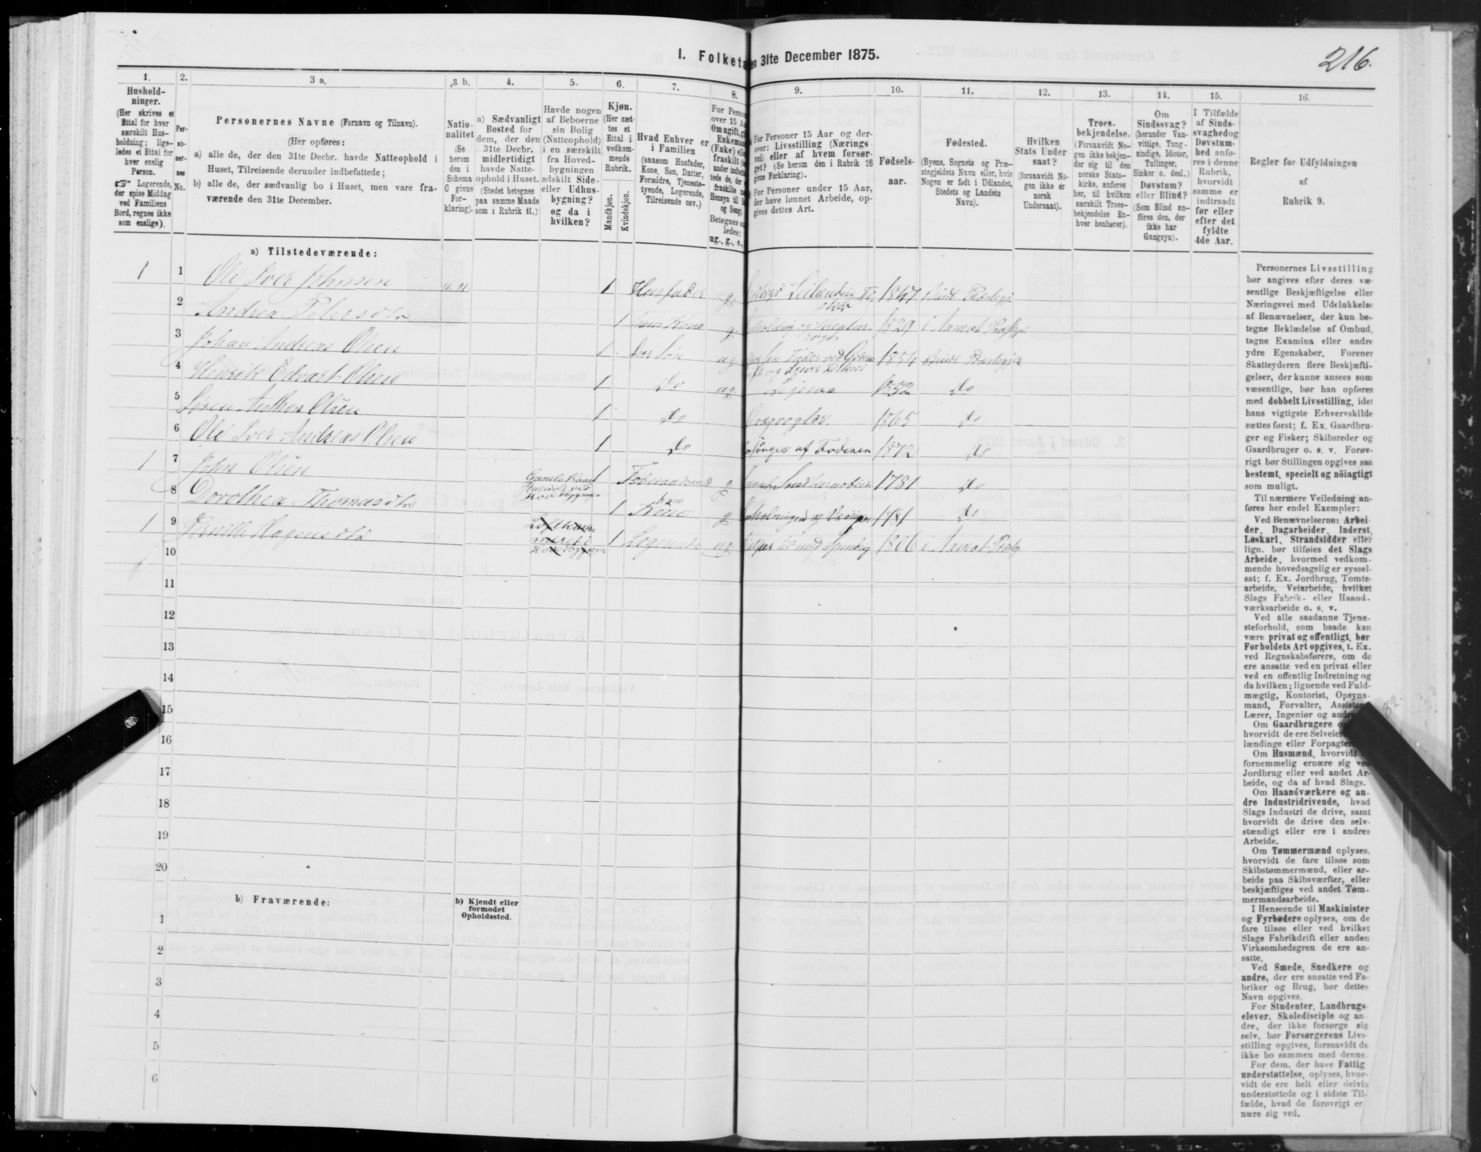 216.
I. Folketa
en 31te December 1875.
1.
2.
3 a.
3 b.
4.
5.
6.
7.
8.
9.
10.
11.
12.
13.
14.
15.
16.
Hushold-
ninger.
(Her skrives et
Ettal for hver
særskilt Hus-
holdning; lige-
ledes et Ettal for
hver enslig
Person.
☞ Logerende,
der spise Middag
ved Familiens
Bord, regnes ikke
som enslige).
Per-
so-
ner-
nes
No.
Personernes Navne (Fornavn og Tilnavn).
(Her opføres:
a) alle de, der den 31te Decbr. havde Natteophold i
Huset, Tilreisende derunder indbefattede;
b) alle de, der sædvanlig bo i Huset, men vare fra-
værende den 31te December.
Natio-
nalitet
(Se
herom
den i
Schema
C givne
For-
klaring).
a) Sædvanligt
Bosted for
dem, der den
31te Decbr.
midlertidigt
havde Natte-
ophold i Huset.
(Stedet betegnes
paa samme Maade
som i Rubrik 11.)
Havde nogen
af Beboerne
sin Bolig
(Natteophold)
i en særskilt
fra Hoved-
bygningen
adskilt Side-
eller Udhus-
bygning?
og da i
hvilken?
Kjøn.
(Her sæt-
tes et
Ettal i
vedkom-
mende
Rubrik.
Mandkjøn.
Kvindekjøn.
Hvad Enhver er
i Familien
(saasom Husfader,
Kone, Søn, Datter,
Forældre, Tjeneste-
tyende, Logerende,
Tilreisende osv.)
For Perso
over 15 Aa
Om ugift, gi
Enkeman
(Enke) elle
fraskilt
Betegnes s
ledes:
ug., g., e.,
For Personer 15 Aar og der-
over: Livsstilling (Nærings-
vei) eller af hvem forsør-
get? (Se herom den i Rubrik 16
givne Forklaring).
For Personer under 15 Aar,
der have lønnet Arbeide, op-
gives dettes Art.
Fødsels-
aar.
Fødested.
(Byens, Sognets og Præ-
stegjeldets Navn eller, hvis
Nogen er født i Udlandet,
Stedets og Landets
Navn).
Hvilken
Stats Under-
saat?
(forsaavidt No-
gen ikke er
norsk
Undersaat).
Troes-
bekjendelse.
(Forsaavidt No-
gen ikke bekjen-
der sig til den
norske Stats-
kirke, anføres
her, til hvilken
særskilt Troes-
bekjendelse En-
hver henhører).
Om
Sindssvag?
(herunder Van-
vittige, Tung-
sindige, Idioter,
Tullinger,
Sinker o. desl.)
Døvstum?
eller Blind?
(Som Blind an-
føres den, der
ikke har
Gangsyn).
I Tilfælde
af Sinds-
svaghed og
Døvstum-
hed anfø-
res i denne
Rubrik,
hvorvidt
samme er
indtraadt
før eller
efter det
fyldte
4de Aar.
Regler for Udfyldningen
af
Rubrik 9.
a) Tilstedeværende:
1 1 Ole Iver Johnsen 1 Husfader g 1847
2 Andrea Pedersdtr 1 Kone g 1829
3 Johan Andreas Olsen 1 Søn ug 1854
4 Hinrik Edvart Olsen 1 Do ug 1852 Do
5 Søren Anthon Olsen 1 Do 1865 Do
6 Ole Iver Andreas Olsen 1 Do af Foderen 1872 Do
1 7 John Olsen 1 g 1781 Do
8 Dorothea Thomasdtr 1 Kone g Do
1 9 1 Logerende ug 1806
10
11
12
13
14
15
16
17
18
19
20
b) Fraværende:
b) Kjendt eller
formodet
Opholdssted.
1
2
3
4
5
6
Personernes Livsstilling
bør angives efter deres væ-
sentlige Beskjæftigelse eller
Næringsvei med Udelukkelse
af Benævnelser, der kun be-
tegne Beklædelse af Ombud,
tagne Examina eller andre
ydre Egenskaber. Forener
Skatteyderen flere Beskjæfti-
gelser, der kunne ansees som
væsentlige, bør han opføres
med dobbelt Livsstilling, idet
hans vigtigste Erhvervskilde
sættes først; f. Ex. Gaardbru-
ger og Fisker; Skibsreder og
Gaardbruger o. s. v. Forøv-
rigt bør Stillingen opgives saa
bestemt, specielt og nøiagtigt
som muligt.
Til nærmere Veiledning an-
føres her endel Exempler:
Ved Benævnelserne: Arbei-
der, Dagarbeider, Inderst,
Løskarl, Strandsidder eller
lign. bør tilføies det Slags
Arbeide, hvormed vedkom-
mende hovedsagelig er syssel-
sat; f. Ex. Jordbrug, Tomte-
arbeide, Veiarbeide, hvilket
Slags Fabrik- eller Haand-
værksarbeide o. s. v.
Ved alle saadanne Tjene-
steforhold, som baade kan
være privat og offentligt, bør
Forholdets Art opgives, t. Ex.
ved Regnskabsførere, om de
ere ansatte ved en privat eller
ved en offentlig Indretning og
da hvilken; lignende ved Fuld-
mægtig, Kontorist, Opsyns-
mand, Forvalter, Assistent,
Lærer, Ingeniør og andre
Om Gaardbrugere
hvorvidt de ere Selveier
lændinge eller Forpagtere
Om Husmænd, hvorvidt
fornemmelig ernære sig ved
Jordbrug eller ved andet Ar-
beide, og da af hvad Slags.
Om Haandværkere og an-
dre Industridrivende, hvad
Slags Industri de drive, samt
hvorvidt de drive den selv-
stændigt eller ere i andres
Arbeide.
Om Tømmermænd oplyses,
hvorvidt de fare tilsøs som
Skibstømmermænd, eller ar-
beide paa Skibsværfter, eller
beskjæftiges ved andet Tøm-
mermandsarbeide.
I Henseende til Maskinister
og Fyrbødere oplyses, om de
fare tilsøs eller ved hvilket
Slags Fabrikdrift eller anden
Virksomhedsgren de ere an-
satte.
Ved Smede, Snedkere og
andre, der ere ansatte ved Fa-
briker og Brug, bør dettes
Navn opgives.
For Studenter, Landbrugs-
elever, Skoledisciple og an-
dre, der ikke forsørge sig
selv, bør Forsørgerens Livs-
stilling opgives, forsaavidt de
ikke bo sammen med denne.
For dem, der have Fattig
understøttelse, oplyses, hvor-
vidt de ere helt eller delvis
understøttede og i sidste Til-
fælde, hvad de forøvrigt er-
nære sig ved.